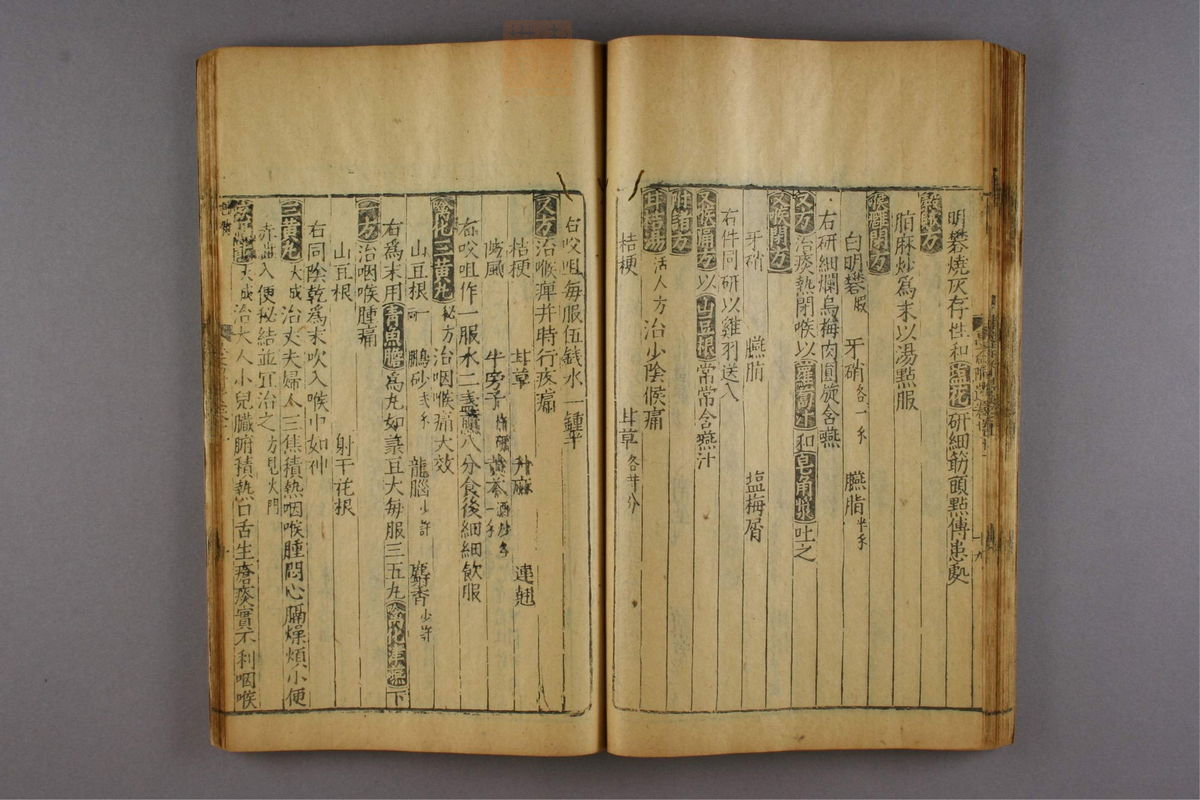 明礬燒灰存性和鹽花研細筯頭點傅患處
方
脂麻炒為末以湯點服
喉雍閉方
白明礬 牙硝各一 臙脂半
右研細爛烏梅肉圓旋含嚥
又方治痰熱閉喉以蘿蔔汁和皂角漿吐之
又喉閉方
牙硝 臙脂 塩梅屑
右件同研以雞羽送入
又喉痛方以山豆根常常含嚥汁
附諸方
甘桔湯活人方治少陰喉痛
桔梗 甘草各等分
右㕮咀每服伍錢水一鍾半
又方治喉痹并時行疼痛
桔梗 甘草 升麻 連翹
防風 牛旁子 黃芩酒炒各一
右㕮咀作一服水二盞煎八分食後細細飲服
噙化三黃丸秘方治咽喉痛大效
山豆根一 鵬砂 龍腦少許 麝香少許
右為末用青魚膽為丸如菉豆大每服三五丸噙化津嚥下
一方治咽喉腫痛
山豆根 射干花根
右同陰乾為末吹入喉中如神
三黃丸大成治丈夫婦人三焦積熱咽喉腫悶心膈燥煩小便
赤澁入便秘結並宜治之方見火門
大成治大人小兒臟腑積熱口舌生瘡痰實不利咽喉